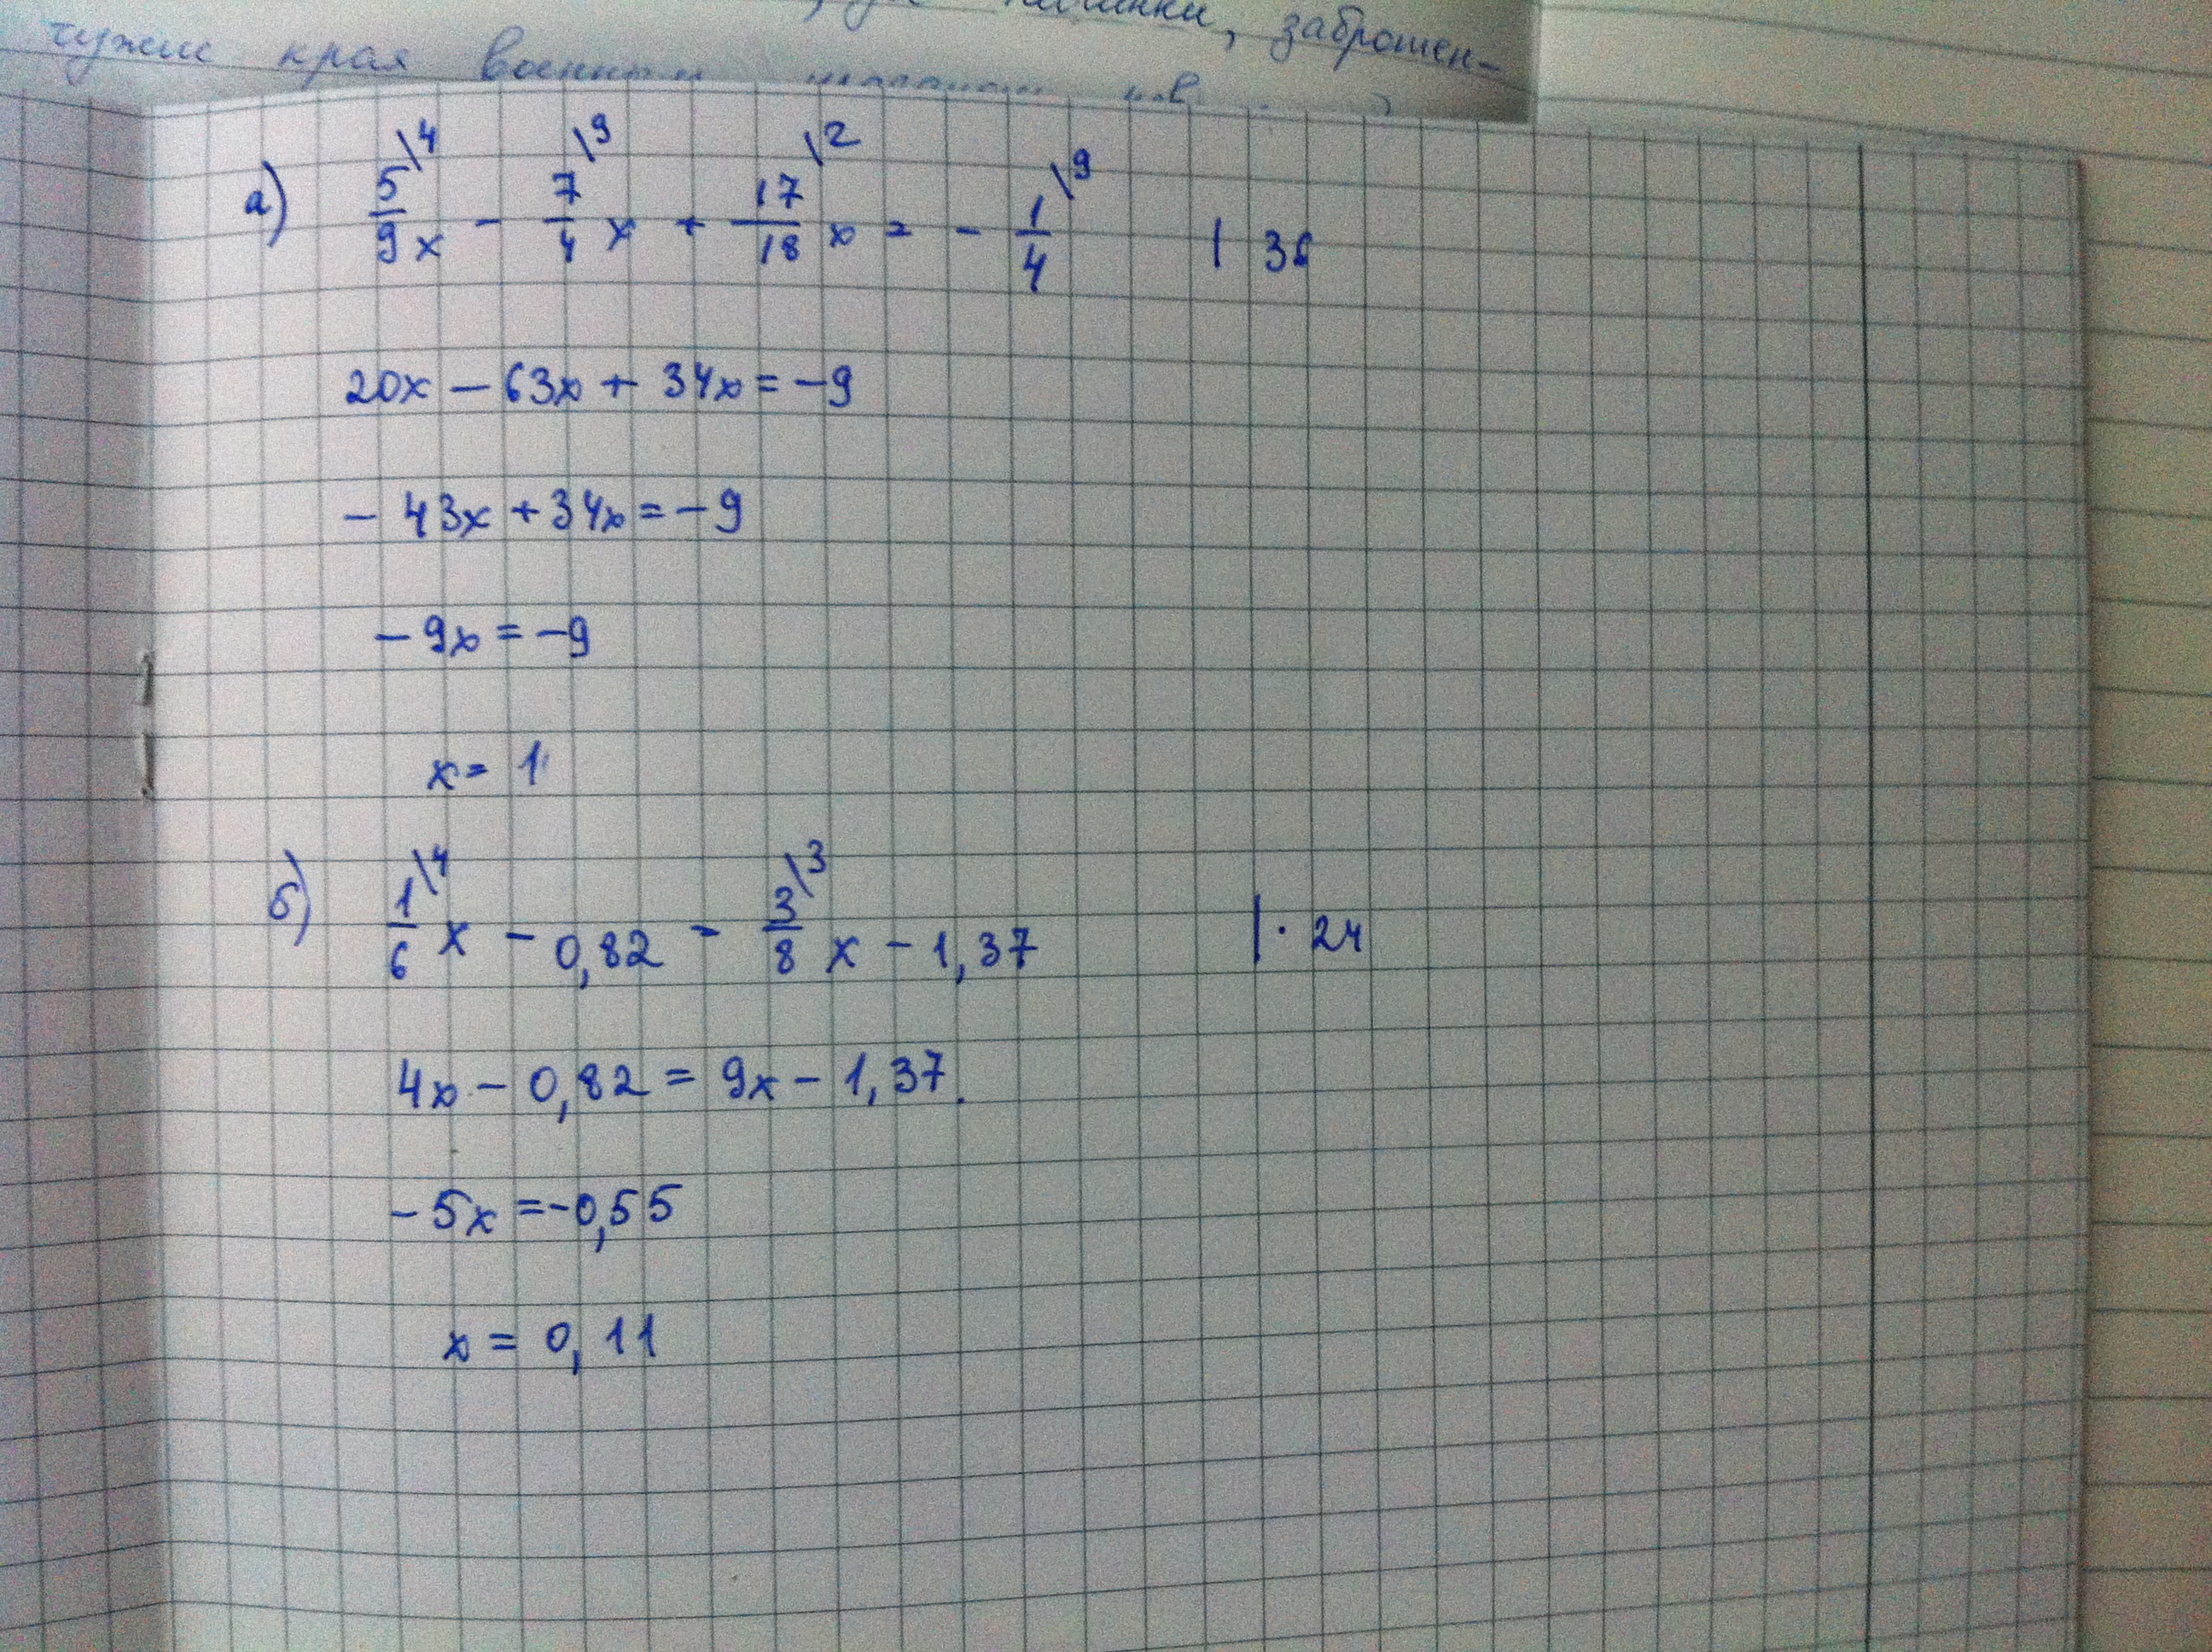 заброшен-
чужие края военным
а) 5/9 \4 x - 7/4 \9 x + 17/18 \2 x = - 1/4 \9 | 36
20x - 63x + 34x = -9
- 43x + 34x = -9
- 9x = -9
x = 1
б) 1/6 \4 x - 0,82 = 3/8 \3 x - 1,37 | · 24
4x - 0,82 = 9x - 1,37.
- 5x = -0,55
x = 0,11